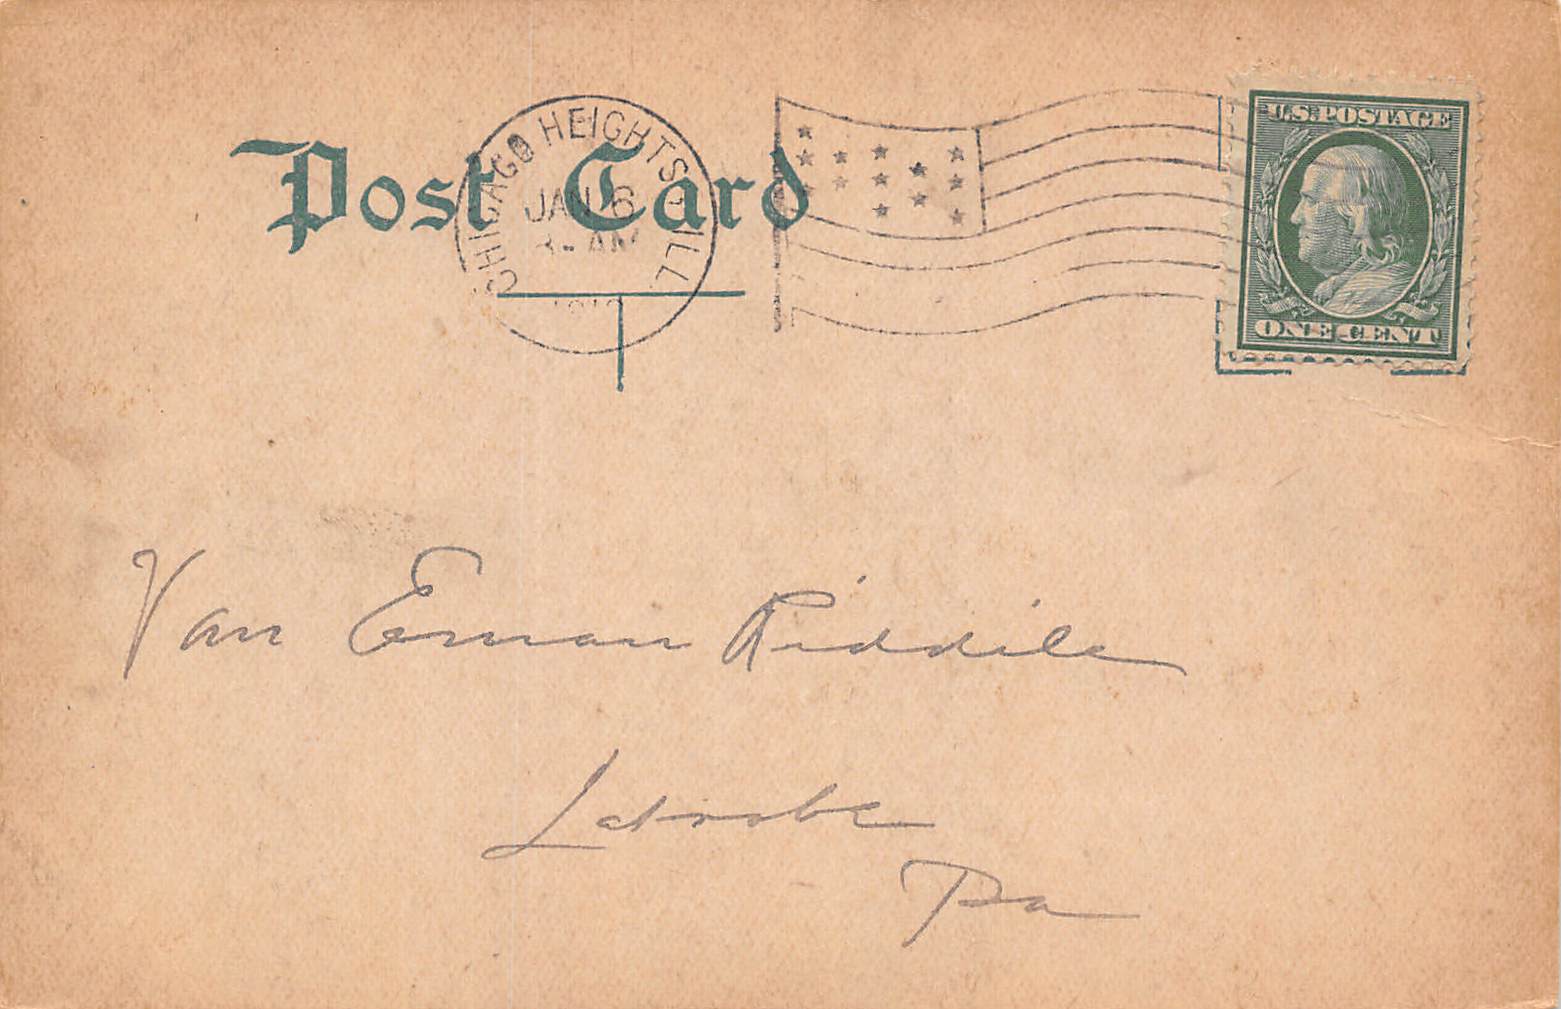 Post Card
CHICAGO HEIGHTS ILL
JAN 6
AM
U.S. POSTAGE
ONE CENT
Van Eman Riddile
Latrobe
Pa